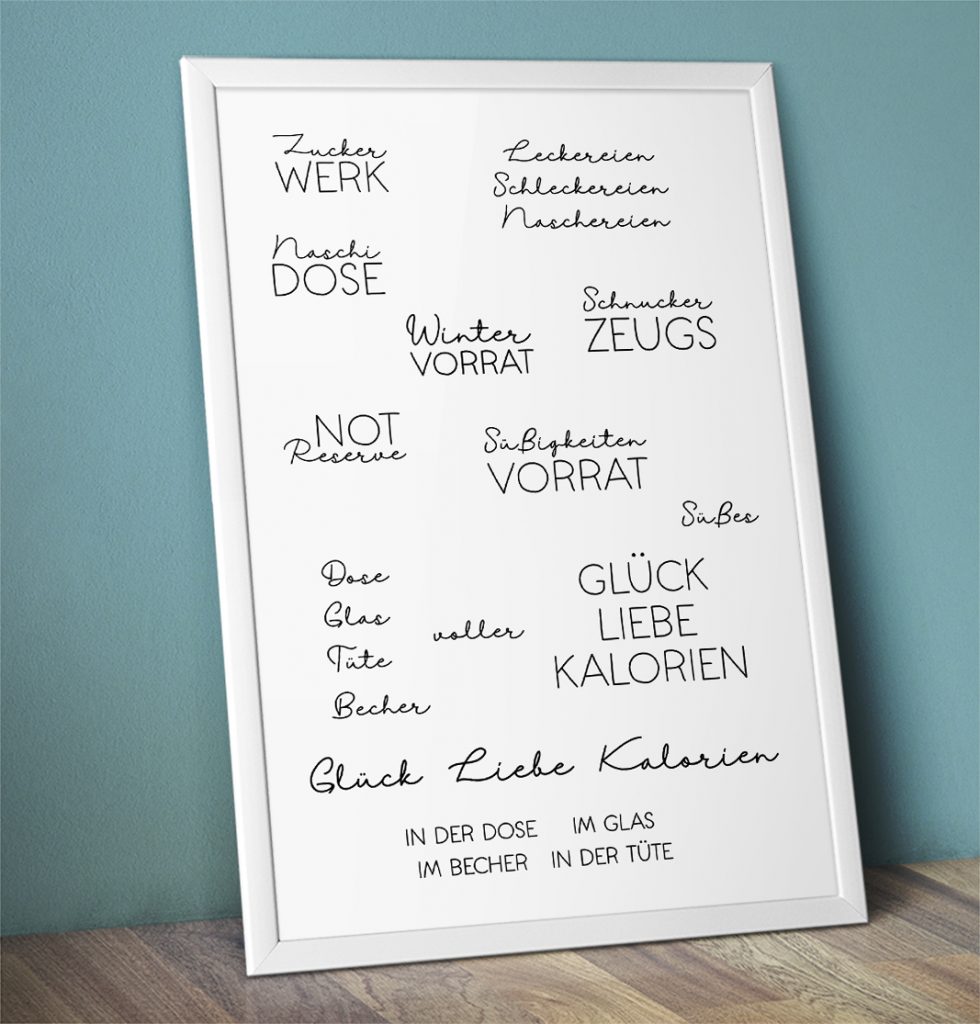 Zucker
WERK
Leckereien
Schleckereien
Naschereien
Naschi
DOSE
Schnucker
ZEUGS
Winter
VORRAT
NOT
Reserve
Süßigkeiten
VORRAT
Süßes
Dose
Glas
Tüte
Becher
voller
GLÜCK
LIEBE
KALORIEN
Glück Liebe Kalorien
IN DER DOSE IM GLAS
IM BECHER IN DER TÜTE